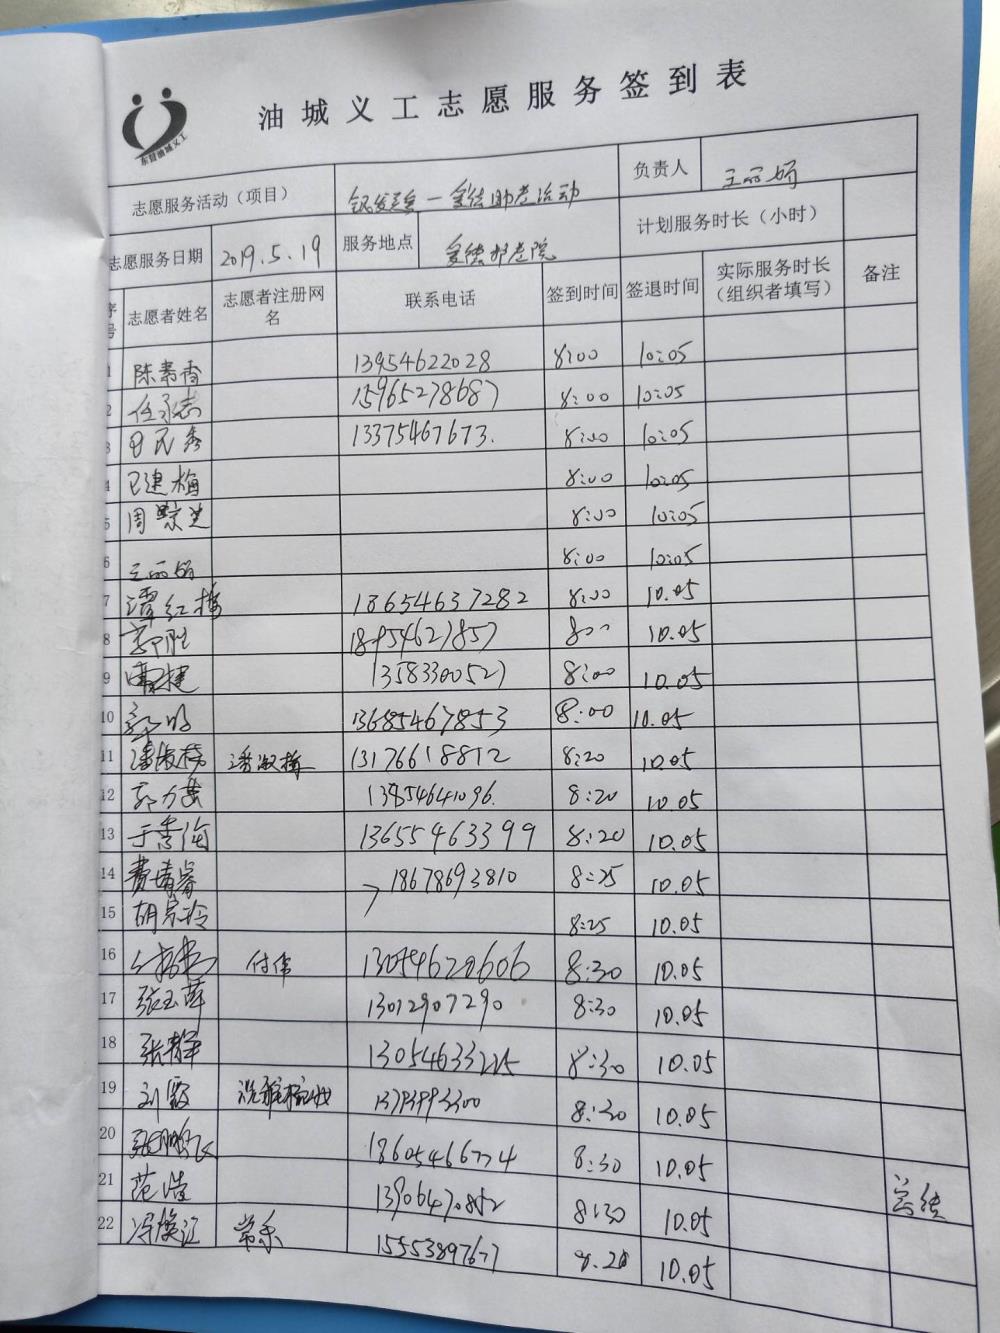 油城义工志愿服务签到表
东营油城义工
志愿服务活动（项目） 助老活动 负责人 王丽娟
志愿服务日期 2019.5.19 服务地点 养老院 计划服务时长（小时）
序号 志愿者姓名 志愿者注册网名 联系电话 签到时间 签退时间 实际服务时长（组织者填写） 备注
1 陈素香 13954622028 8:00 10:05
2 任永志 15965278687 8:00 10:05
3 田民秀 13375467673. 8:00 10:05
4 建梅 8:00 10:05
5 周 8:00 10:05
6 王丽娟 8:00 10:05
7 谭红梅 18654637282 8:00 10.05
8 胜 8:00 10.05
9 捷 13583300527 8:00 10.05
10 郭明 13685467853 8:00 10.05
11 潘淑梅 潘淑梅 13176618812 8:20 10.05
12 郭 13854641096. 8:20 10.05
13 于香 13655463399 8:20 10.05
14 费靖睿 18678693810 8:25 10.05
15 胡 玲 8:25 10.05
16 付伟 13054620606 8:30 10.05
17 张玉萍 13012907290 8:30 10.05
18 张静 13054633225 8:30 10.05
19 刘霞 8:30 10.05
20 张鹏飞 18605466774 8:30 10.05
21 范浩 13906470852 8:30 10.05
22 冯焕江 常乐 15553897677 8.20 10.05